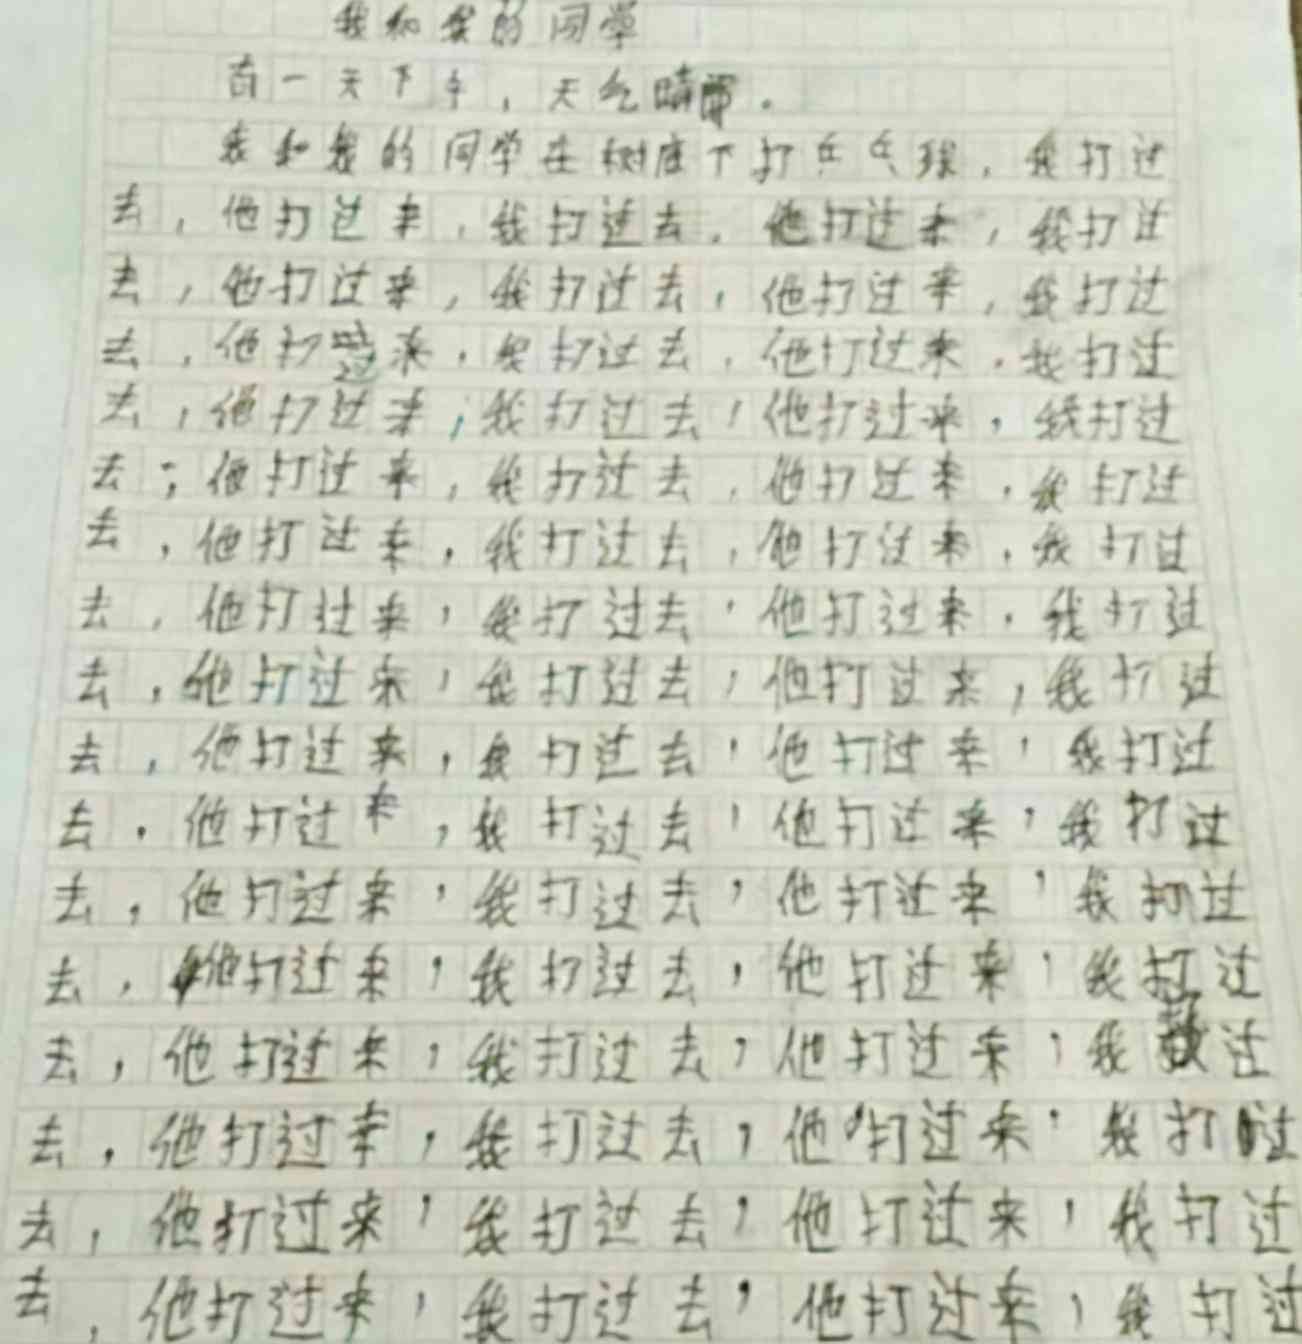 我和我的同学
有一天下午，天气晴。
我和我的同学在树底下打乒乓球，我打过
去，他打过来，我打过去，他打过来，我打过
去，他打过来，我打过去，他打过来，我打过
去，他打过来，我打过去，他打过来，我打过
去，他打过来，我打过去，他打过来，我打过
去，他打过来，我打过去，他打过来，我打过
去，他打过来，我打过去，他打过来，我打过
去，他打过来，我打过去，他打过来，我打过
去，他打过来，我打过去，他打过来，我打过
去，他打过来，我打过去，他打过来，我打过
去，他打过来，我打过去，他打过来，我打过
去，他打过来，我打过去，他打过来，我打过
去，他打过来，我打过去，他打过来，我打过
去，他打过来，我打过去，他打过来，我过
去，他打过来，我打过去，他打过来，我打过
去，他打过来，我打过去，他打过来，我打过
去，他打过来，我打过去，他打过来，我打过